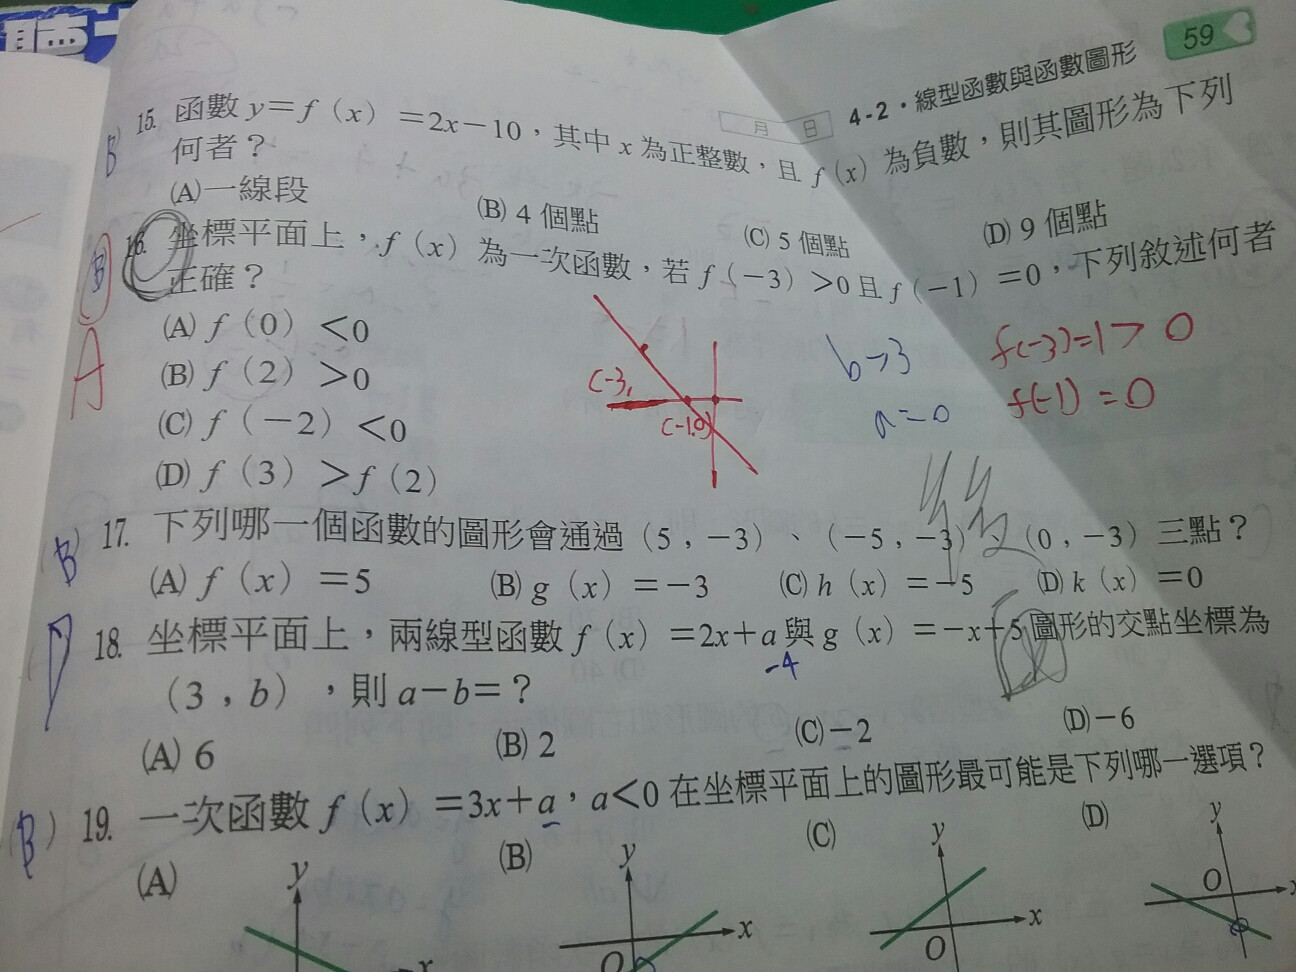 聽
59
4-2・線型函數與函數圖形
月 日
B 15. 函數 y=f(x)=2x-10，其中 x 為正整數，且 f(x) 為負數，則其圖形為下列
何者？
(A)一線段 (B) 4 個點 (C) 5 個點 (D) 9 個點
B 16. 坐標平面上，f(x) 為一次函數，若 f(-3)>0 且 f(-1)=0，下列敘述何者
正確？
A
(A) f(0)<0
(B) f(2)>0
(C) f(-2)<0
(D) f(3)>f(2)
(-3,
(-1,0)
b→3
a=0
f(-3)=1>0
f(-1)=0
(B) 17. 下列哪一個函數的圖形會通過 (5,-3)、(-5,-3)、(0,-3) 三點？
(A) f(x)=5 (B) g(x)=-3 (C) h(x)=-5 (D) k(x)=0
D 18. 坐標平面上，兩線型函數 f(x)=2x+a 與 g(x)=-x+5 圖形的交點坐標為
-4
(3,b)，則 a-b=？
(A) 6 (B) 2 (C)-2 (D)-6
(B) 19. 一次函數 f(x)=3x+a，a<0 在坐標平面上的圖形最可能是下列哪一選項？
(A) (B) (C) (D)
y y y y
x x x x
O O O